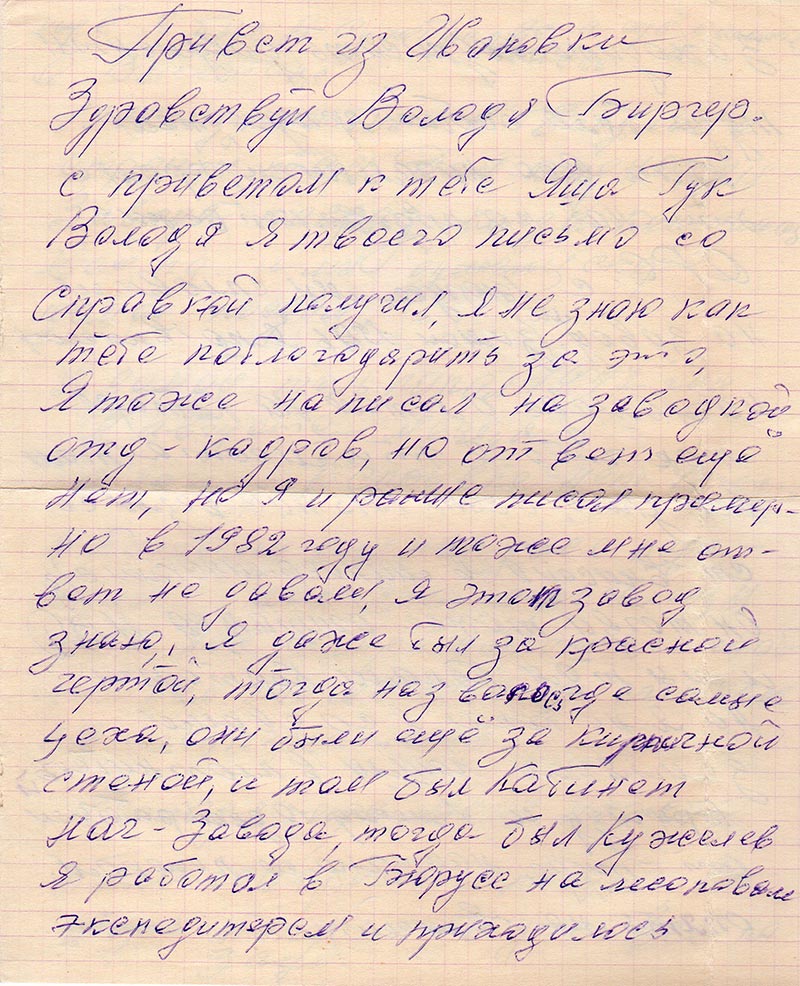 Привет из Ивановки
Здравствуй Володя Биргер.
с приветом к тебе Яша Гук
Володя я твоего письмо со
Справкой получил, я не знаю как
тебе поблогодарить за это,
Я тоже написал на завод к ней
отд-кадров, но ответ ещё
нет, но я и раньше писал пример-
но в 1982 году и тоже мне от-
вет не давали, я этот завод
знаю, я даже был за красной
чертой, тогда называлось где самые
цеха, они были ещё за кирпичной
стеной, и там был Кабинет
нач-Завода, тогда был Кужелев
я работал в Бирюсе на лесоповале
экспедитером и приходилось